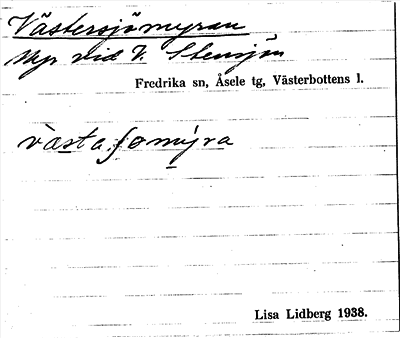 Västersjömyran
Myr vid V. Stensjön
Fredrika sn, Åsele tg, Västerbottens l.
vàsta ʃomýra
Lisa Lidberg 1938.